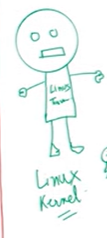 Linux
Linux
Kernel